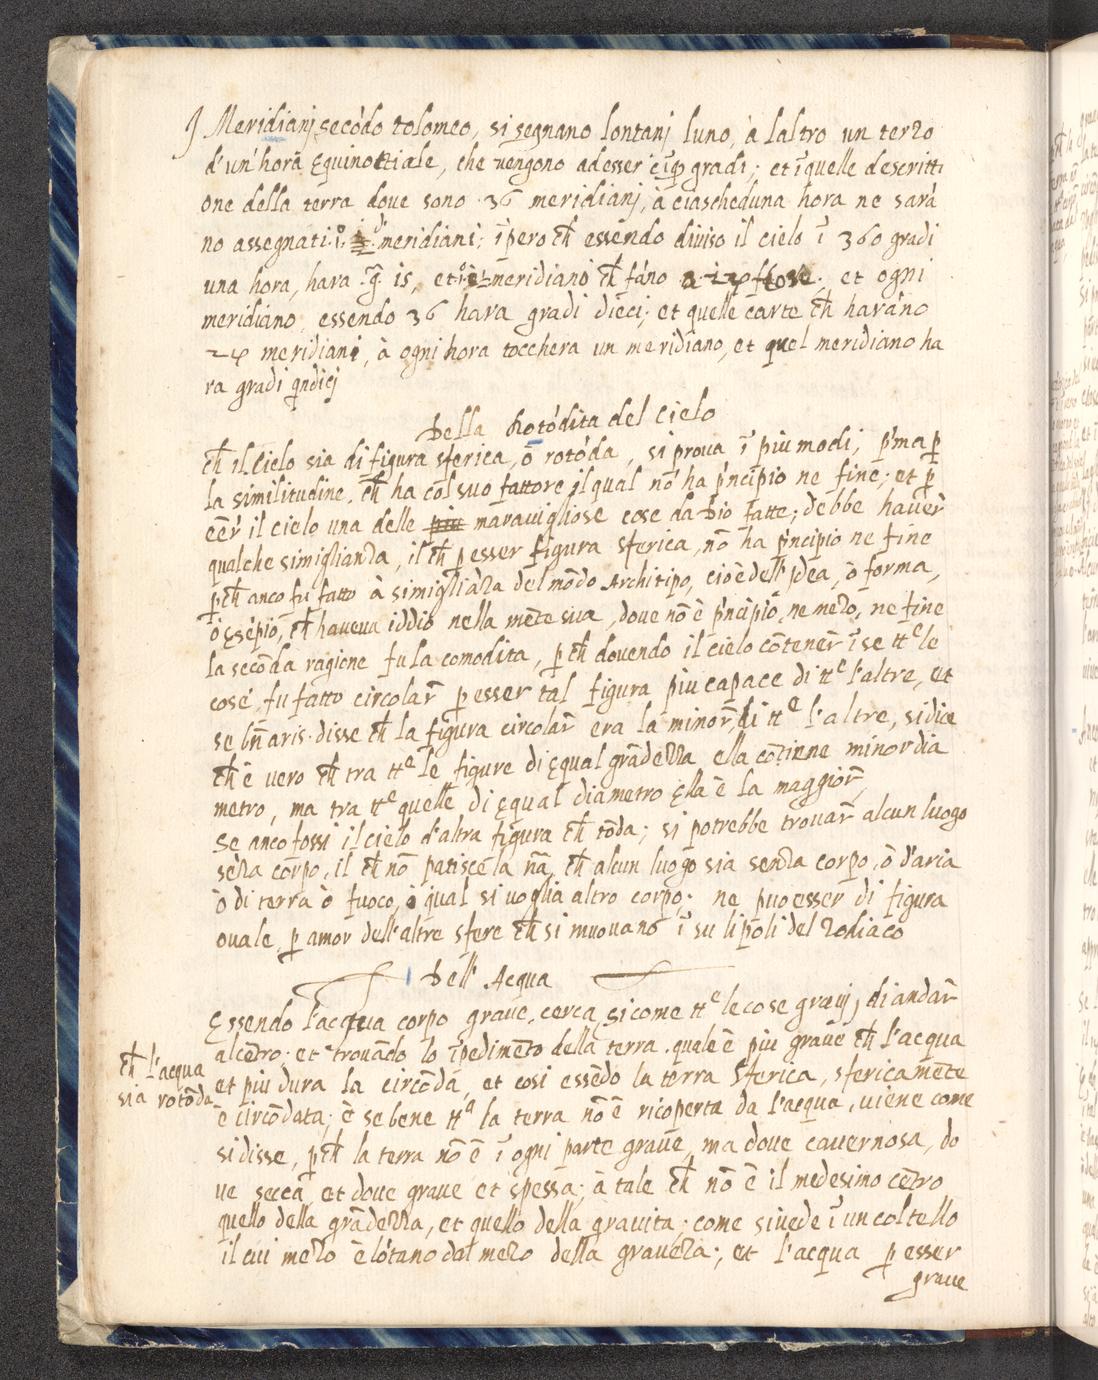 I Meridianj secōdo tolomeo, si segnano lontanj luno, à laltro un terzo
d'un'hora Equinottiale, che vengono adesser gradi; et ī quelle descritti
one della terra dove sono 36 meridianj, à ciascheduna hora ne sarà
no assegnati meridiani; īpero ch̄ essendo diviso il cielo ī 360 gradi
una hora, hara g. 15, et meridiano ch̄ fāno et ogni
meridiano essendo 36 hara gradi dieci; et quelle carte ch̄ harāno
24 meridiani, à ogni hora tocchera un meridiano, et quel meridiano ha
ra gradi qndicj
Della Rotōdita del Cielo
ch̄ il Cielo sia di figura sferica, ō rotōda, si prova ī piu modi; p'ma p̄
la similitudine, ch̄ ha col suo fattore, il qual nō ha p'ncipio ne fine; et p̄
eēr il cielo una delle più maravigliose cose da Dio fatte; debbe haver
qualche simiglianza, il ch̄ p esser figura sferica, nō ha p'ncipio ne fine
p ch̄ anco fu fatto à simigliāza del mōdo Architipo, cioè dell'Idea, ò forma,
ò essēpio, ch̄ haveva iddio nella mēte sua, dove nō è p'ncipio, ne mezo, ne fine
la secōda ragione fu la comodita, p ch̄ dovendo il cielo cōtener ī se tte le
cose, fu fatto circolar p esser tal figura piu capace di tte l'altre, et
se bn̄ aris. disse ch̄ la figura circolar era la minor di tte l'altre, si dice
ch̄ è vero ch̄ tra tte le figure di equal grādezza ella cōtiene minor dia
metro, ma tra tte quelle di equal diametro ella è la maggior,
Se anco fossi il cielo d'altra figura ch̄ tōda; si potrebbe trovar alcun luogo
sēza corpo, il ch̄ nō patisce la nā, ch̄ alcun luogo sia senza corpo, ò d'aria
ò di terra ò fuoco, ò qual si voglia altro corpo. ne puo esser di figura
ovale, p amor dell'altre sfere ch̄ si muovano ī su li poli del Zodiaco
Dell'Acqua
Essendo l'acqua corpo grave, cerca, si come tte le cose gravj, di andar
al cētro; et trovādo lo īpedimēto della terra quale è piu grave ch̄ l'acqua
ch̄ l'acqua
sia rotōda
et piu dura la circōda, et cosi essēdo la terra sferica, sfericamēte
è circōdata; è se bene tta la terra nō è ricoperta da l'acqua, viene come
si disse, p ch̄ la terra nō è ī ogni parte grave, ma dove cavernosa, do
ve secca et dove grave et spessa; à tale ch̄ nō è il medesimo cētro
quello della grādezza, et quello della gravita; come si vede ī un coltello
il cui mezo è lōtano dal mezo della graveza; et l'acqua p esser
grave